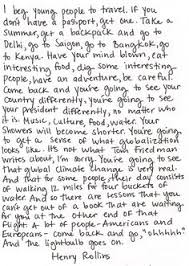 I beg young people to travel. If you
don't have a passport, get one. Take a
Summer, get a backpack and go to
Delhi, go to Saigon, go to Bangkok, go
to Kenya. Have your mind blown, eat
interesting food, dig some interesting
people, have an adventure, be careful.
Come back and you're going to see your
Country differently, you're going to see
your president differently, no matter who
it is. Music, Culture, food, water. Your
Showers will become shorter. You're going
to get a sense of what globalization
looks like. It's not what Tom Friedman
writes about, I'm sorry. You're going to see
that global climate change is very real.
And that for some people, their day consists
of walking 12 miles for four buckets of
water. And so there are lessons that you
can't get out of a book that are waiting
for you at the other end of that
flight. A lot of people - Americans and
Europeans - come back and go, "ohhhhh"
And the lightbulb goes on.
Henry Rollins